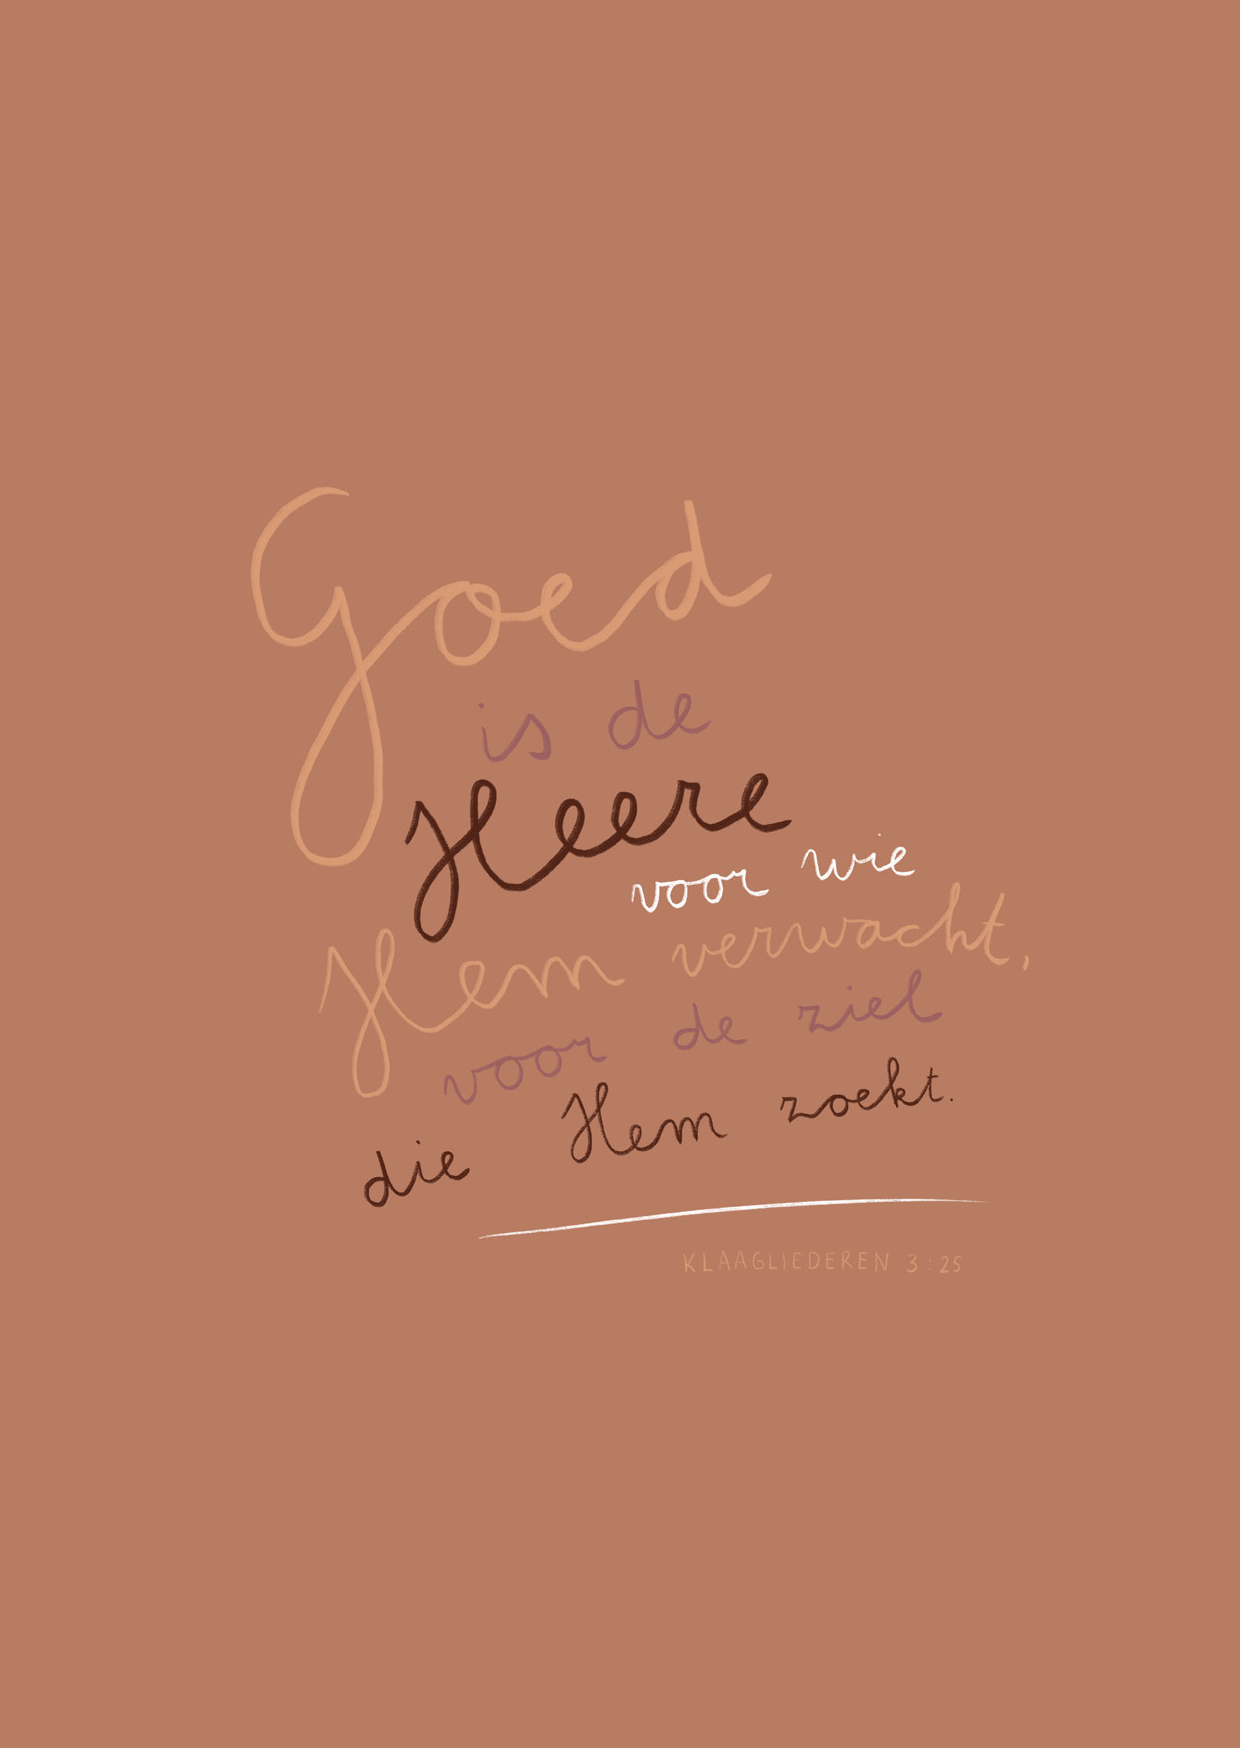 Goed
is de
Heere
voor wie
Hem verwacht,
voor de ziel
die Hem zoekt.
KLAAGLIEDEREN 3:25